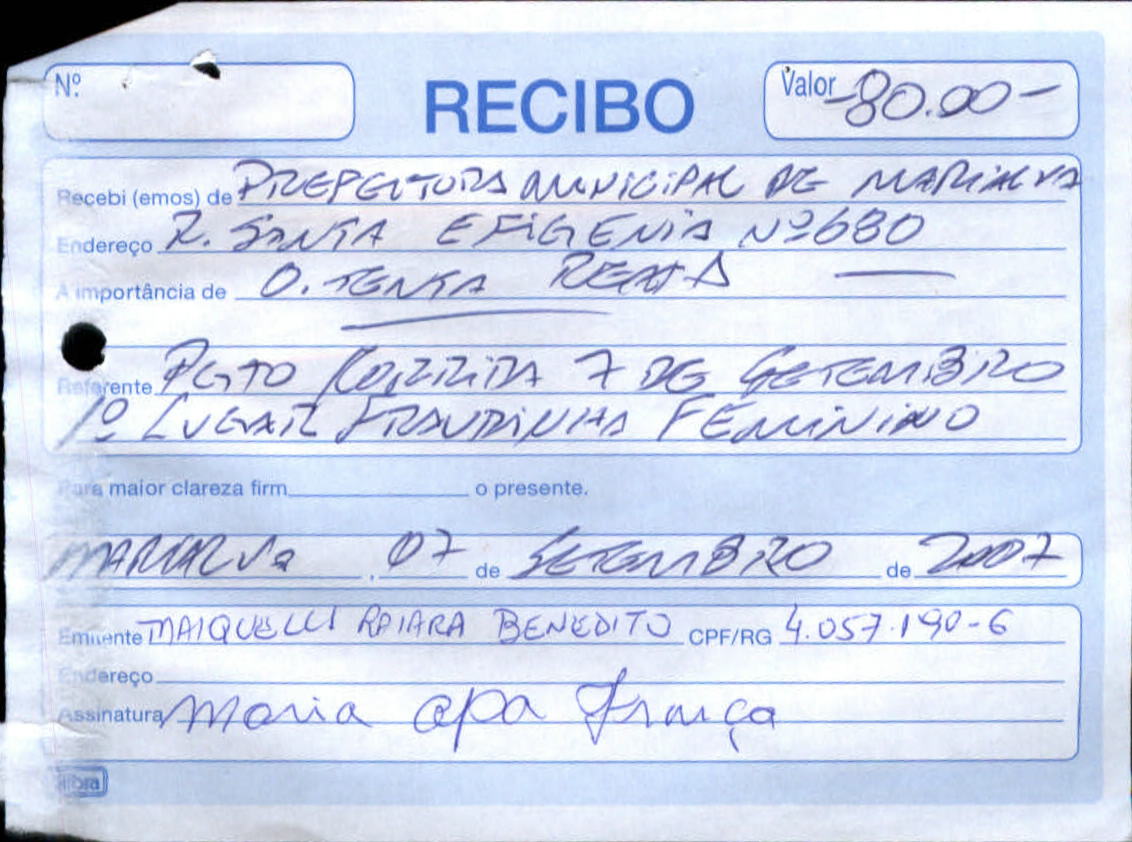 Nº
RECIBO
Valor -80.00-
Recebi (emos) de PREFEITURA MUNICIPAL DE MARIALVA
Endereço R. SANTA EFIGENIA Nº 680
A importância de OITENTA REAIS
Referente PGTO CORRIDA 7 DE SETEMBRO
1º LUGAR FRAUDINHA FEMININO
Para maior clareza firm o presente.
MARIALVA, 07 de SETEMBRO de 2007
Emitente MAIQUELLI RAIARA BENEDITO CPF/RG 4.057.190-6
Endereço
Assinatura Maria Apa França